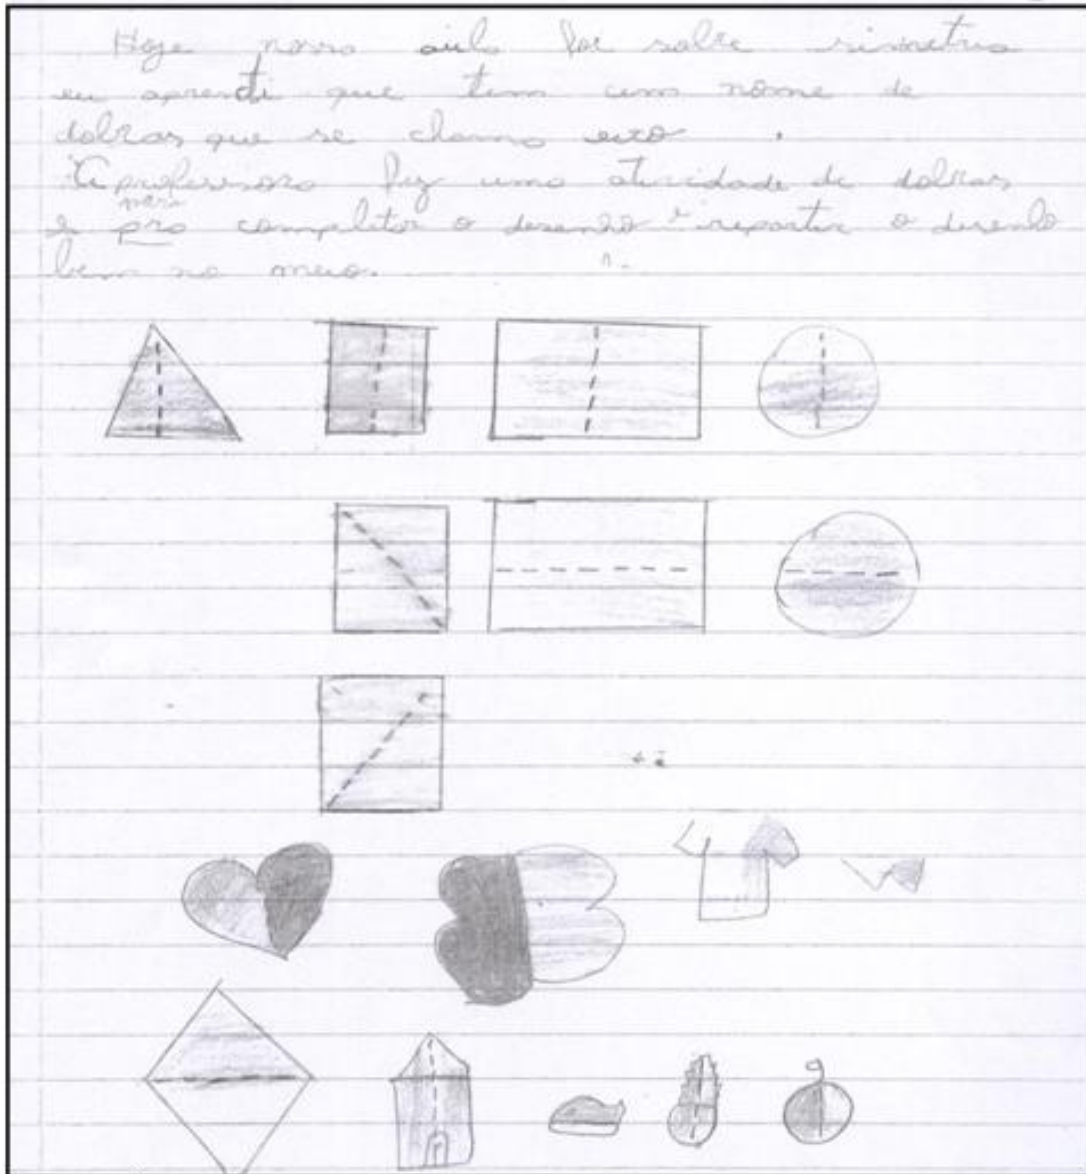 Hoje nosso aula foi sobre simetria
eu aprendi que tem um nome de
dobras que se chama eixo .
A professora fez uma atividade de dobras
e pra para completar o desenho e repartir o desenho
bem no meio.